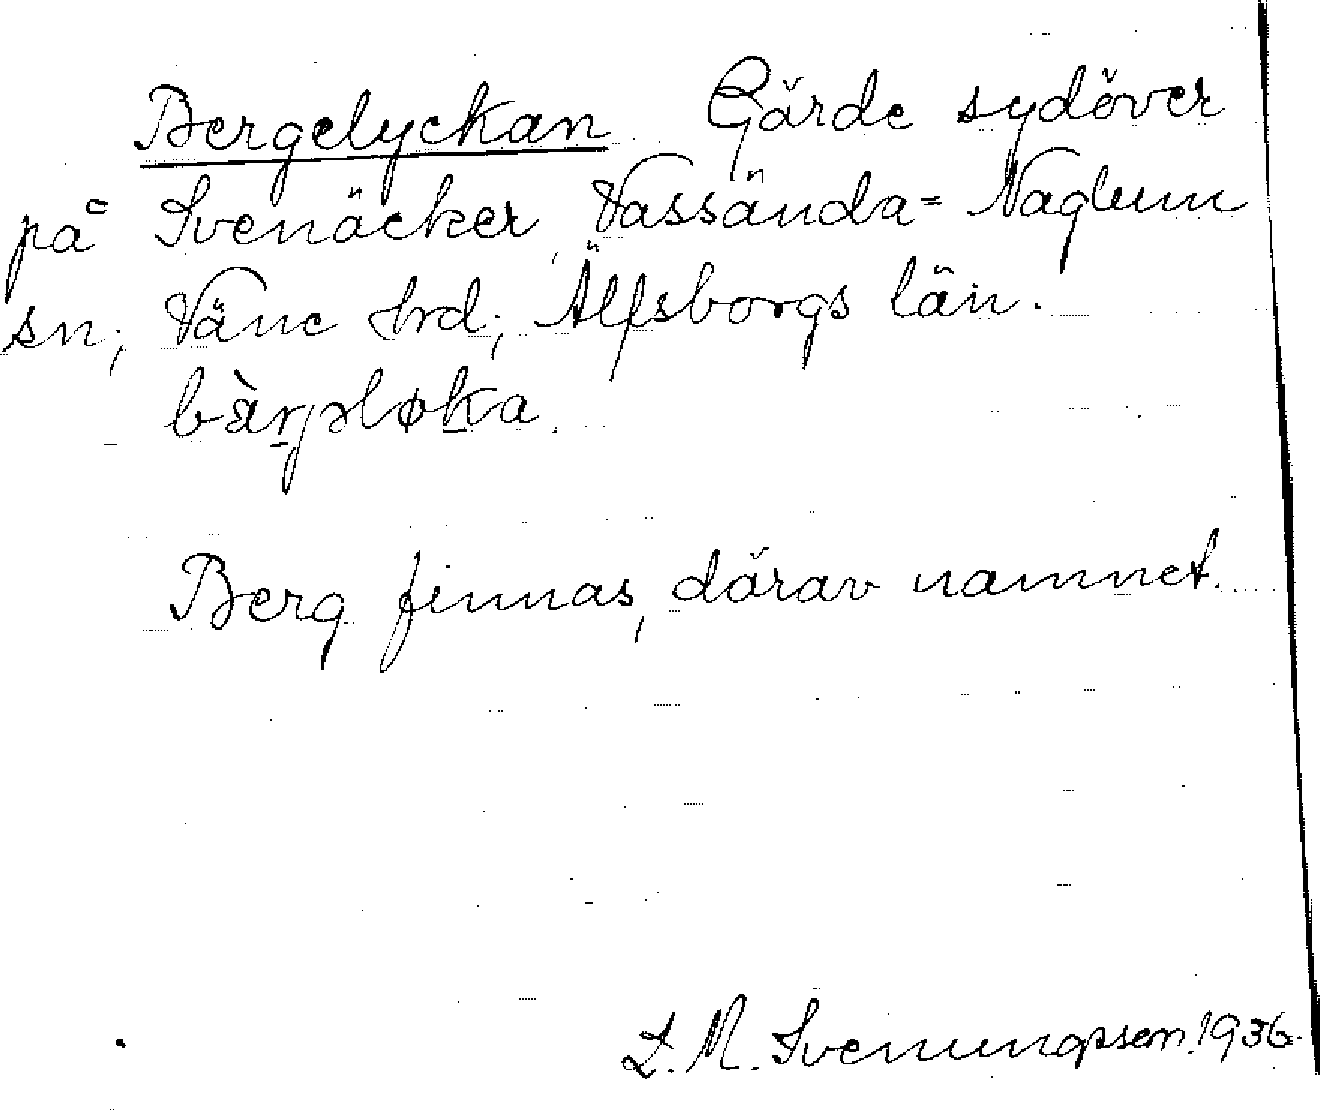 Bergelyckan Gärde sydöver
på Svenäcker, Vassända-Naglum
sn; Väne hrd; Älfsborgs län.
bàrjəløka.
Berg finnas, därav namnet.
L. M. Svenungsson. 1936.